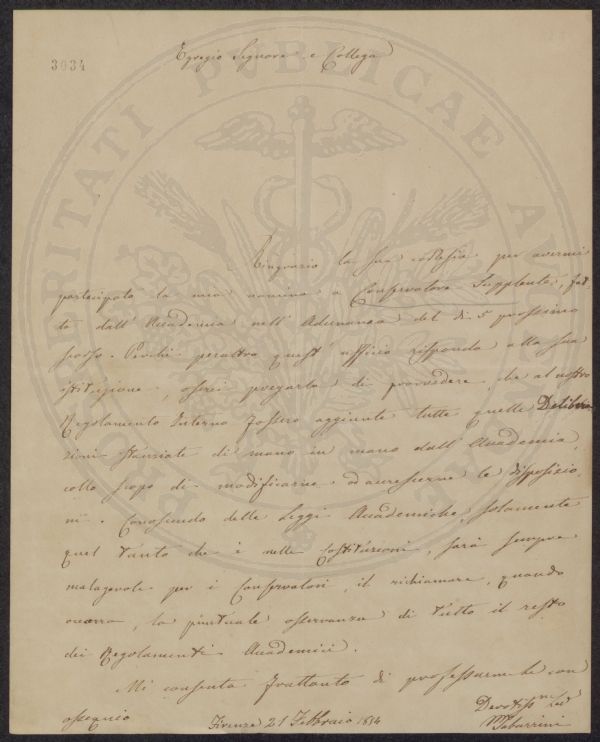 3034
Egregio Signore e Collega
PROSPERITATI PUBLICAE AUGENDAE
Ringrazio la sua cortesia per avermi
partecipato la mia nomina a Conservatore Supplente, fat-
ta dall' Accademia nell' Adunanza del dì 5 prossimo
scorso. Perchè peraltro quest' uffizio risponda alla sua
istituzione, oserei pregarla di provvedere, che al nostro
Regolamento Interno fossero aggiunte tutte quelle Delibera
zioni stanziate di mano in mano dall' Accademia,
collo scopo di modificarne od accrescerne le disposizio-
ni. Conoscendo delle Leggi Accademiche, solamente
quel tanto che è nelle Costituzioni, sarà sempre
malagevole per i Conservatori, il richiamare, quando
occorra, la puntuale osservanza di tutto il resto
dei Regolamenti Accademici.
Mi consenta frattanto di professarmele con
ossequio
Firenze 21 Febbraio 1854
Devotiss.mo
M. Tabarrini